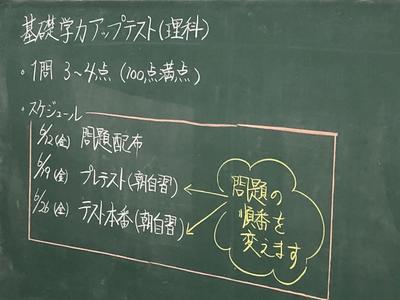 基礎学力アップテスト(理科)
・1問 3～4点 (100点満点)
・スケジュール
6/12(金) 問題配布
6/19(金) プレテスト(朝自習)
6/26(金) テスト本番(朝自習)
問題の
順番を
変えます